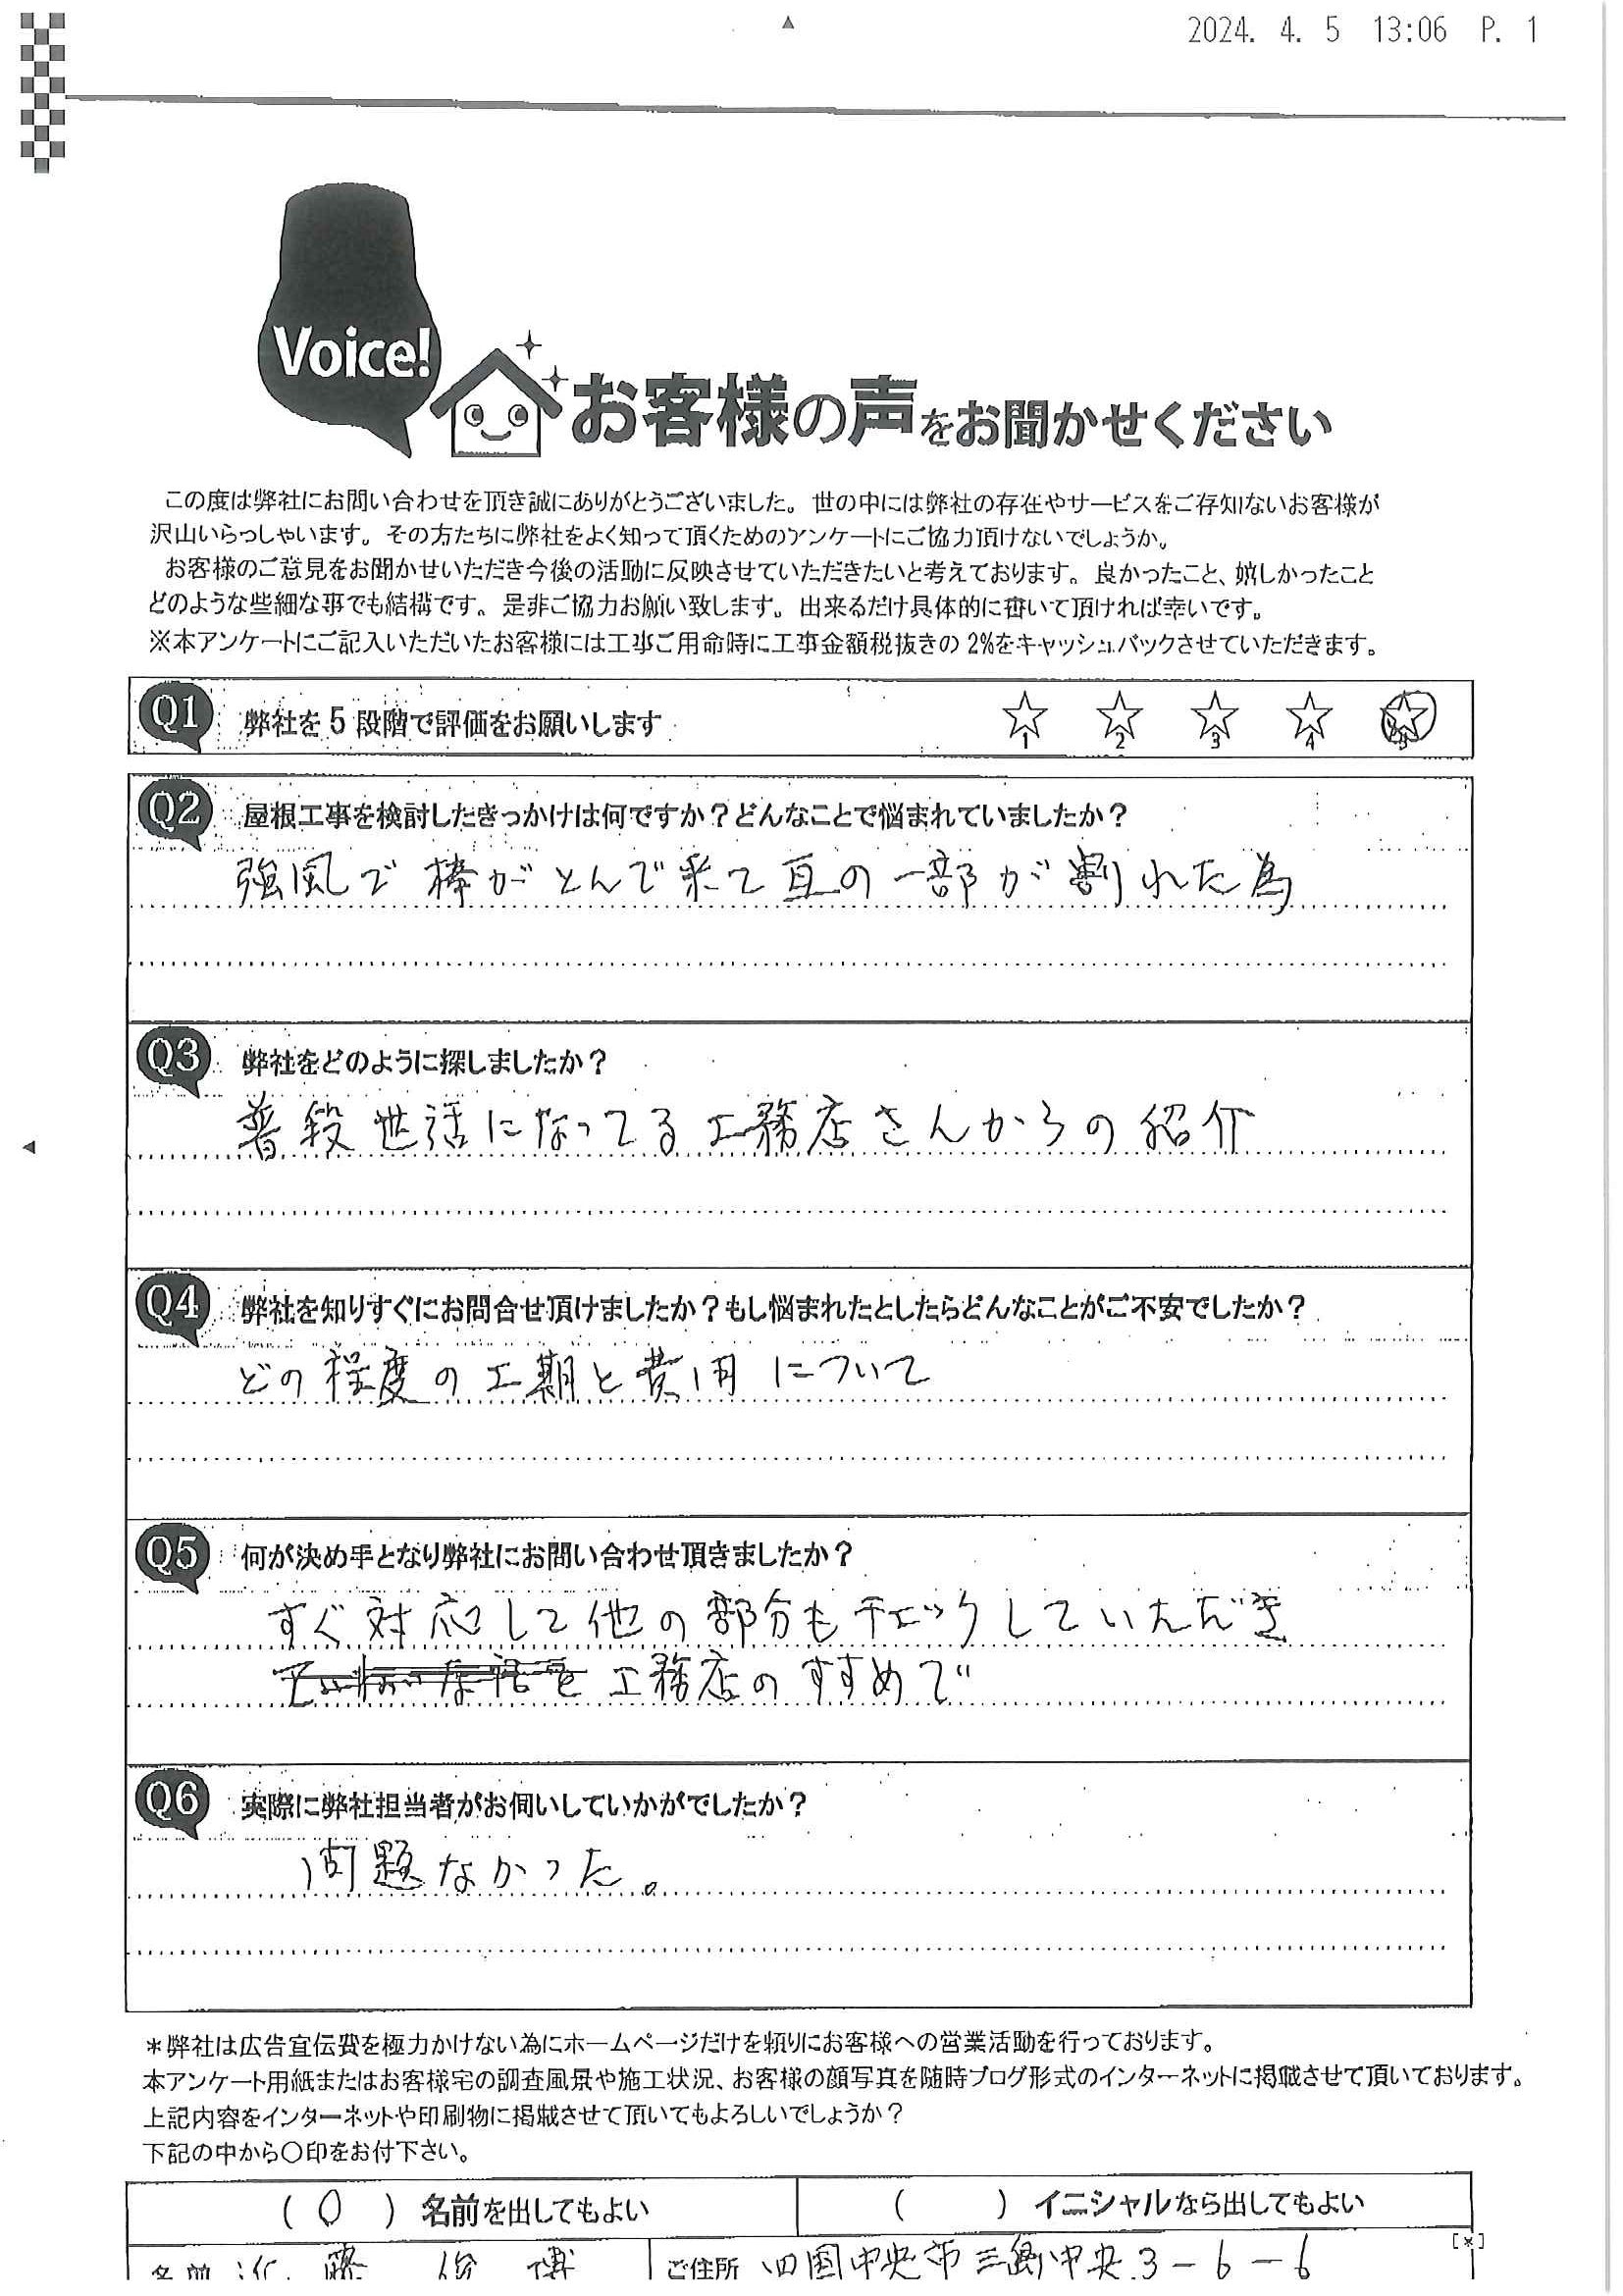 2024. 4. 5 13:06 P. 1
Voice!
お客様の声をお聞かせください
この度は弊社にお問い合わせを頂き誠にありがとうございました。世の中には弊社の存在やサービスをご存知ないお客様が
沢山いらっしゃいます。その方たちに弊社をよく知って頂くためのアンケートにご協力頂けないでしょうか。
お客様のご意見をお聞かせいただき今後の活動に反映させていただきたいと考えております。良かったこと、嬉しかったこと
どのような些細な事でも結構です。是非ご協力お願い致します。出来るだけ具体的に書いて頂ければ幸いです。
※本アンケートにご記入いただいたお客様には工事ご用命時に工事金額税抜きの2%をキャッシュバックさせていただきます。
Q1 弊社を5段階で評価をお願いします ☆1 ☆2 ☆3 ☆4 ☆5
Q2 屋根工事を検討したきっかけは何ですか？どんなことで悩まれていましたか？
強風で棒がとんで来て瓦の一部が割れた為
Q3 弊社をどのように探しましたか？
普段世話になってる工務店さんからの紹介
Q4 弊社を知りすぐにお問合せ頂けましたか？もし悩まれたとしたらどんなことがご不安でしたか？
どの程度の工期と費用について
Q5 何が決め手となり弊社にお問い合わせ頂きましたか？
すぐ対応して他の部分もチェックしていただき
工務店のすすめで
Q6 実際に弊社担当者がお伺いしていかがでしたか？
問題なかった。
＊弊社は広告宣伝費を極力かけない為にホームページだけを頼りにお客様への営業活動を行っております。
本アンケート用紙またはお客様宅の調査風景や施工状況、お客様の顔写真を随時ブログ形式のインターネットに掲載させて頂いております。
上記内容をインターネットや印刷物に掲載させて頂いてもよろしいでしょうか？
下記の中から〇印をお付下さい。
（ 〇 ）名前を出してもよい （ ）イニシャルなら出してもよい
[*]
名前 近藤 ご住所 四国中央市三島中央3-6-6